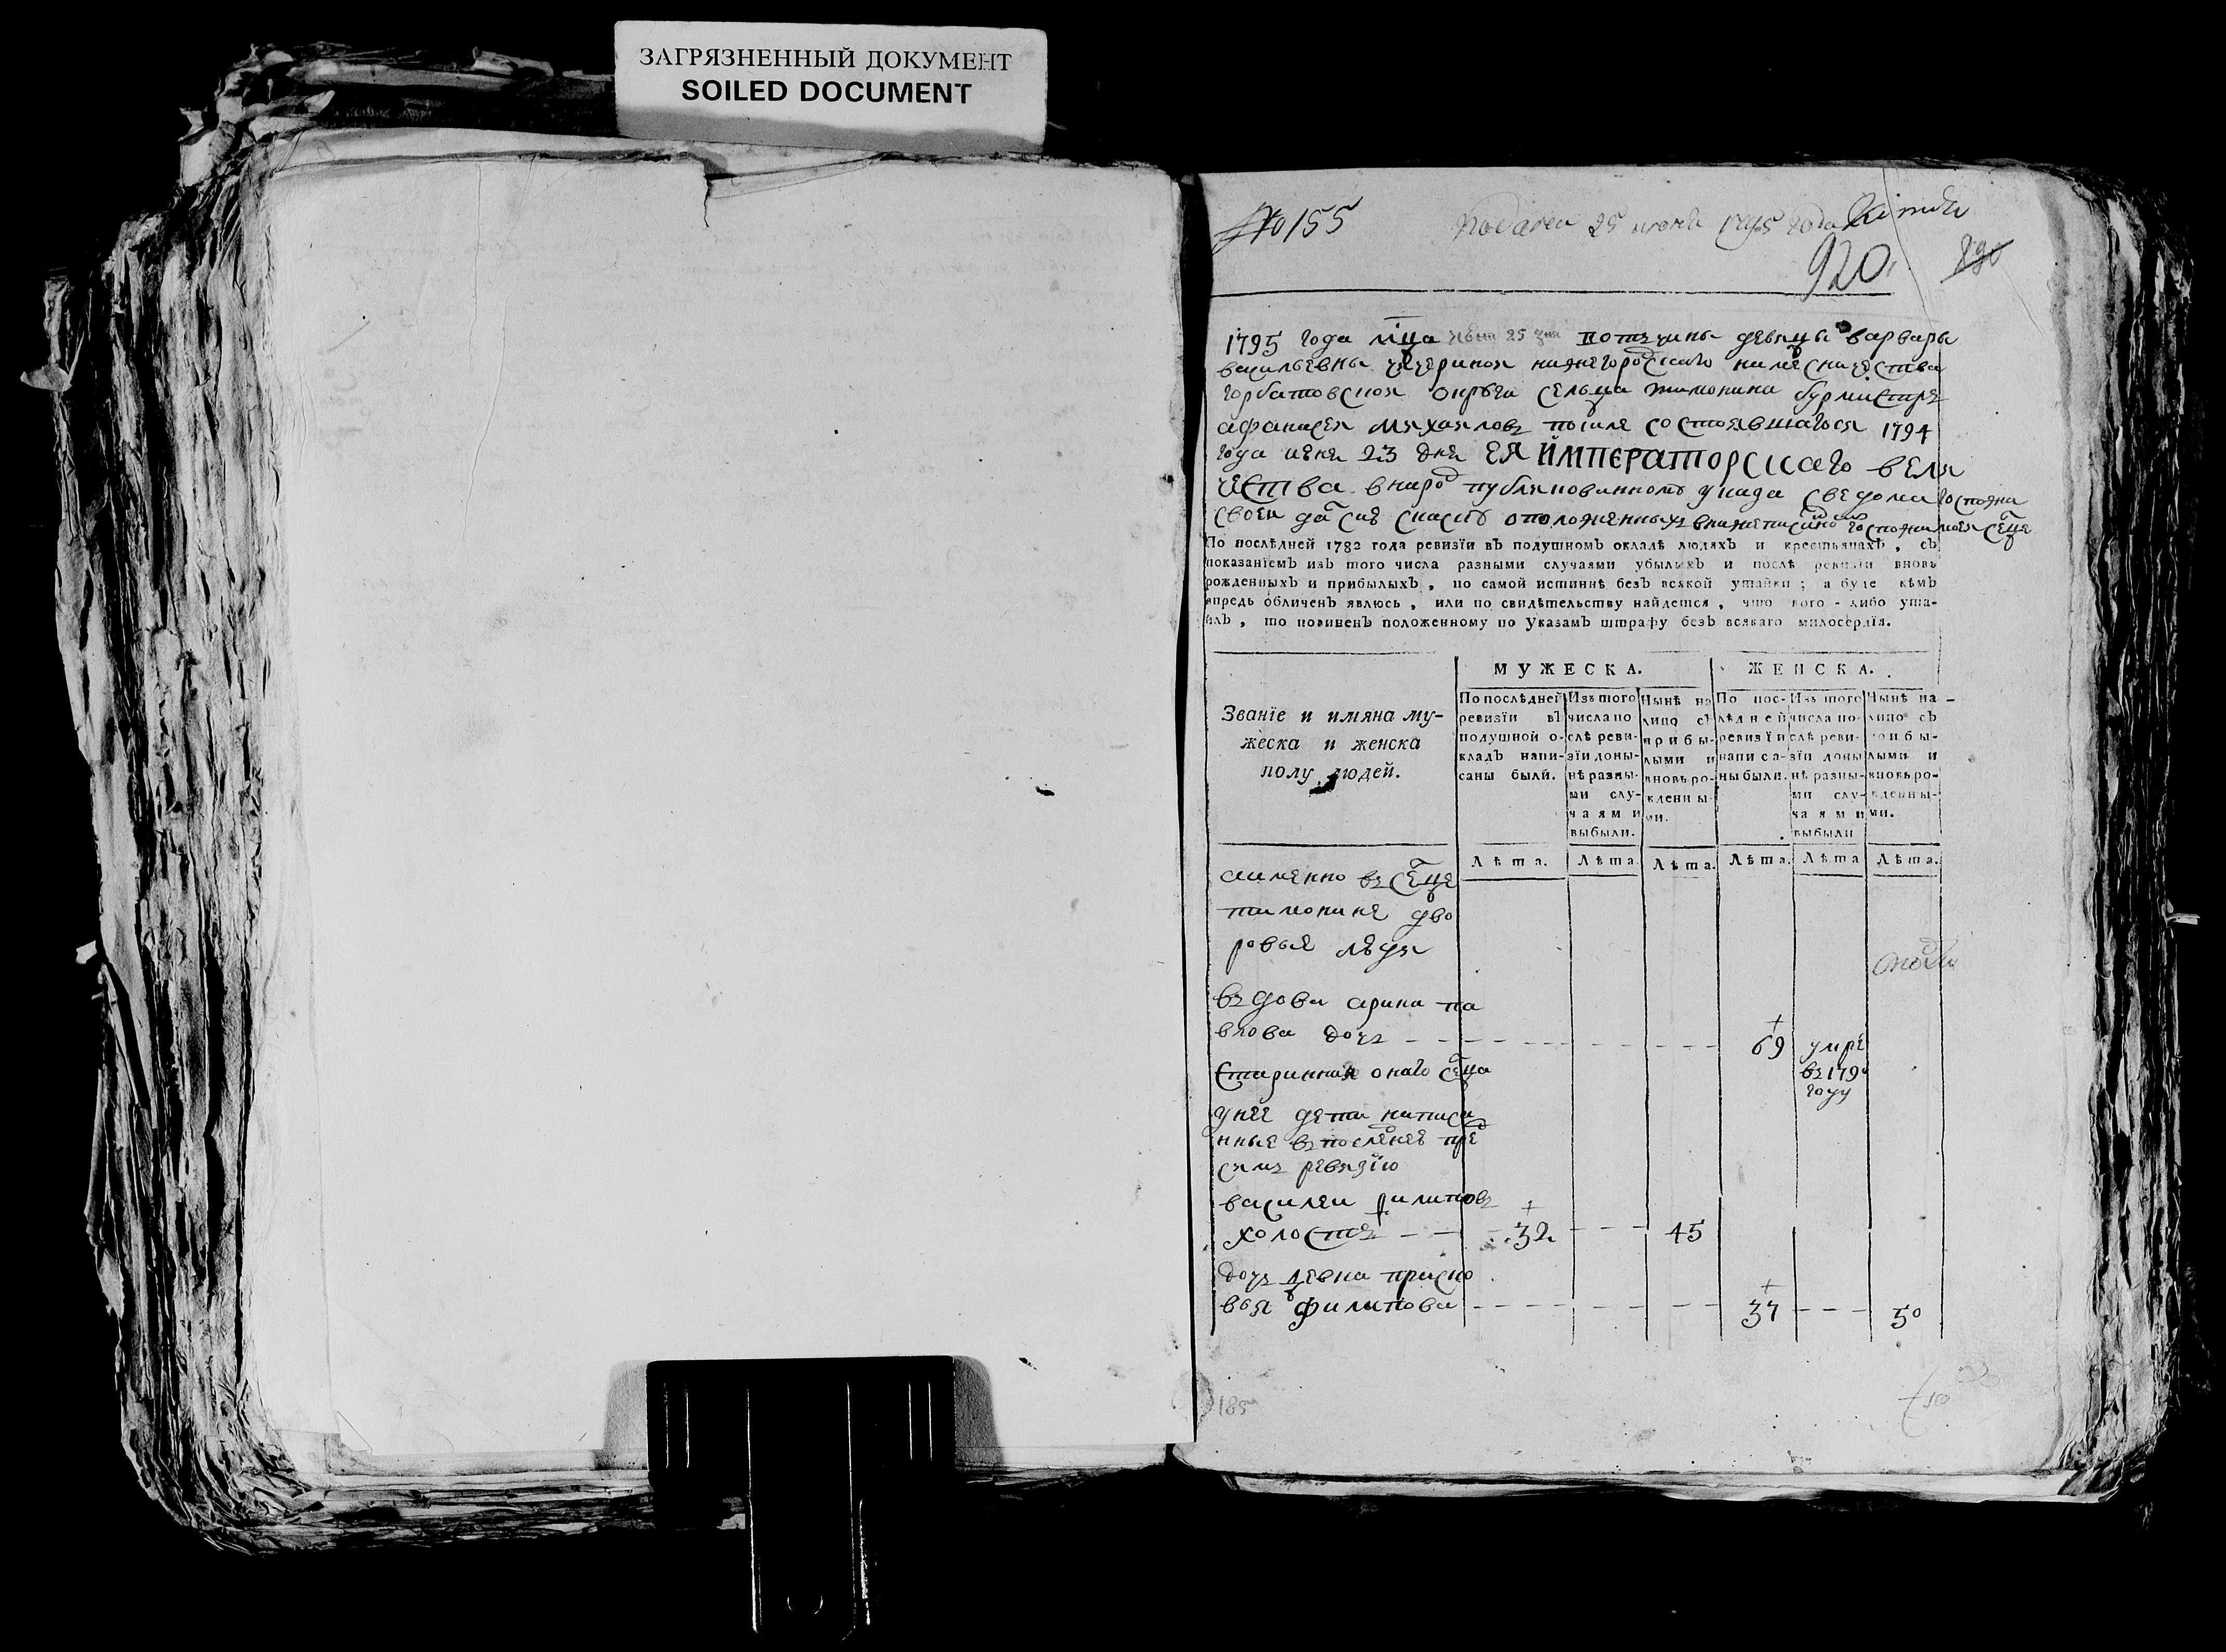 ЗАГРЯЗНЕННЫЙ ДОКУМЕНТ
SOILED DOCUMENT
№ 155
Подана 25 июня 1795 года
920
890
1795 года мца июня 25 дня вотчины девицы варвары
васильевны чичериной нижегородскаго наместничества
горбатовской округи сельца тимонина бурмистръ
афанасей михайловъ после состоявшагося 1794
года июня 23 дня ЕЯ ИМПЕРАТОРСкаго вели
чества в народ публикованного указа сведома госпожи
своей дал сию скаску о положенныхъ
По послѣдней 1782 года ревизїи въ подушномъ окладѣ людяхъ и крестьянахъ, съ
показанїемъ изъ того числа разными случаями убылыхъ и послѣ ревизїи вновь
рожденныхъ и прибылыхъ, по самой истиннѣ безъ всякой утайки; а буде кѣмъ
впредь обличенъ явлюсь, или по свидѣтельству найдется, что кого-либо ута-
илъ, то повиненъ положенному по Указамъ штрафу безъ всякаго милосердїя.
МУЖЕСКА.
ЖЕНСКА.
Званїе и имяна му-
жеска и женска
полу людей.
По послѣдней
ревизїи въ
подушной о-
кладъ напи-
саны были.
Изъ того
числа по-
слѣ реви-
зїи доны-
нѣ разны-
ми слу-
чаями
выбыли.
Нынѣ на
лицо съ
прибы-
лыми и
вновь ро-
жденны-
ми.
По пос-
лѣдней
ревизїи
написа-
ны были.
Изъ того
числа по-
слѣ реви-
зїи доны
нѣ разны-
ми слу-
чаями
выбыли
Нынѣ на-
лицо съ
прибы-
лыми и
вновь ро-
жденны-
ми.
Лѣта. Лѣта. Лѣта. Лѣта. Лѣта Лѣта.
а именно въ селце
тимонине дво
ровые люди
въдова арина па
влова дочь 69 умре
въ 179
году
старинная онаго селца
у нее дети написа
нные въ последнею пред
симъ ревизїю
василеи филиповъ
холостъ 32 45
дочь девка праско
вья филипова 37 50
185